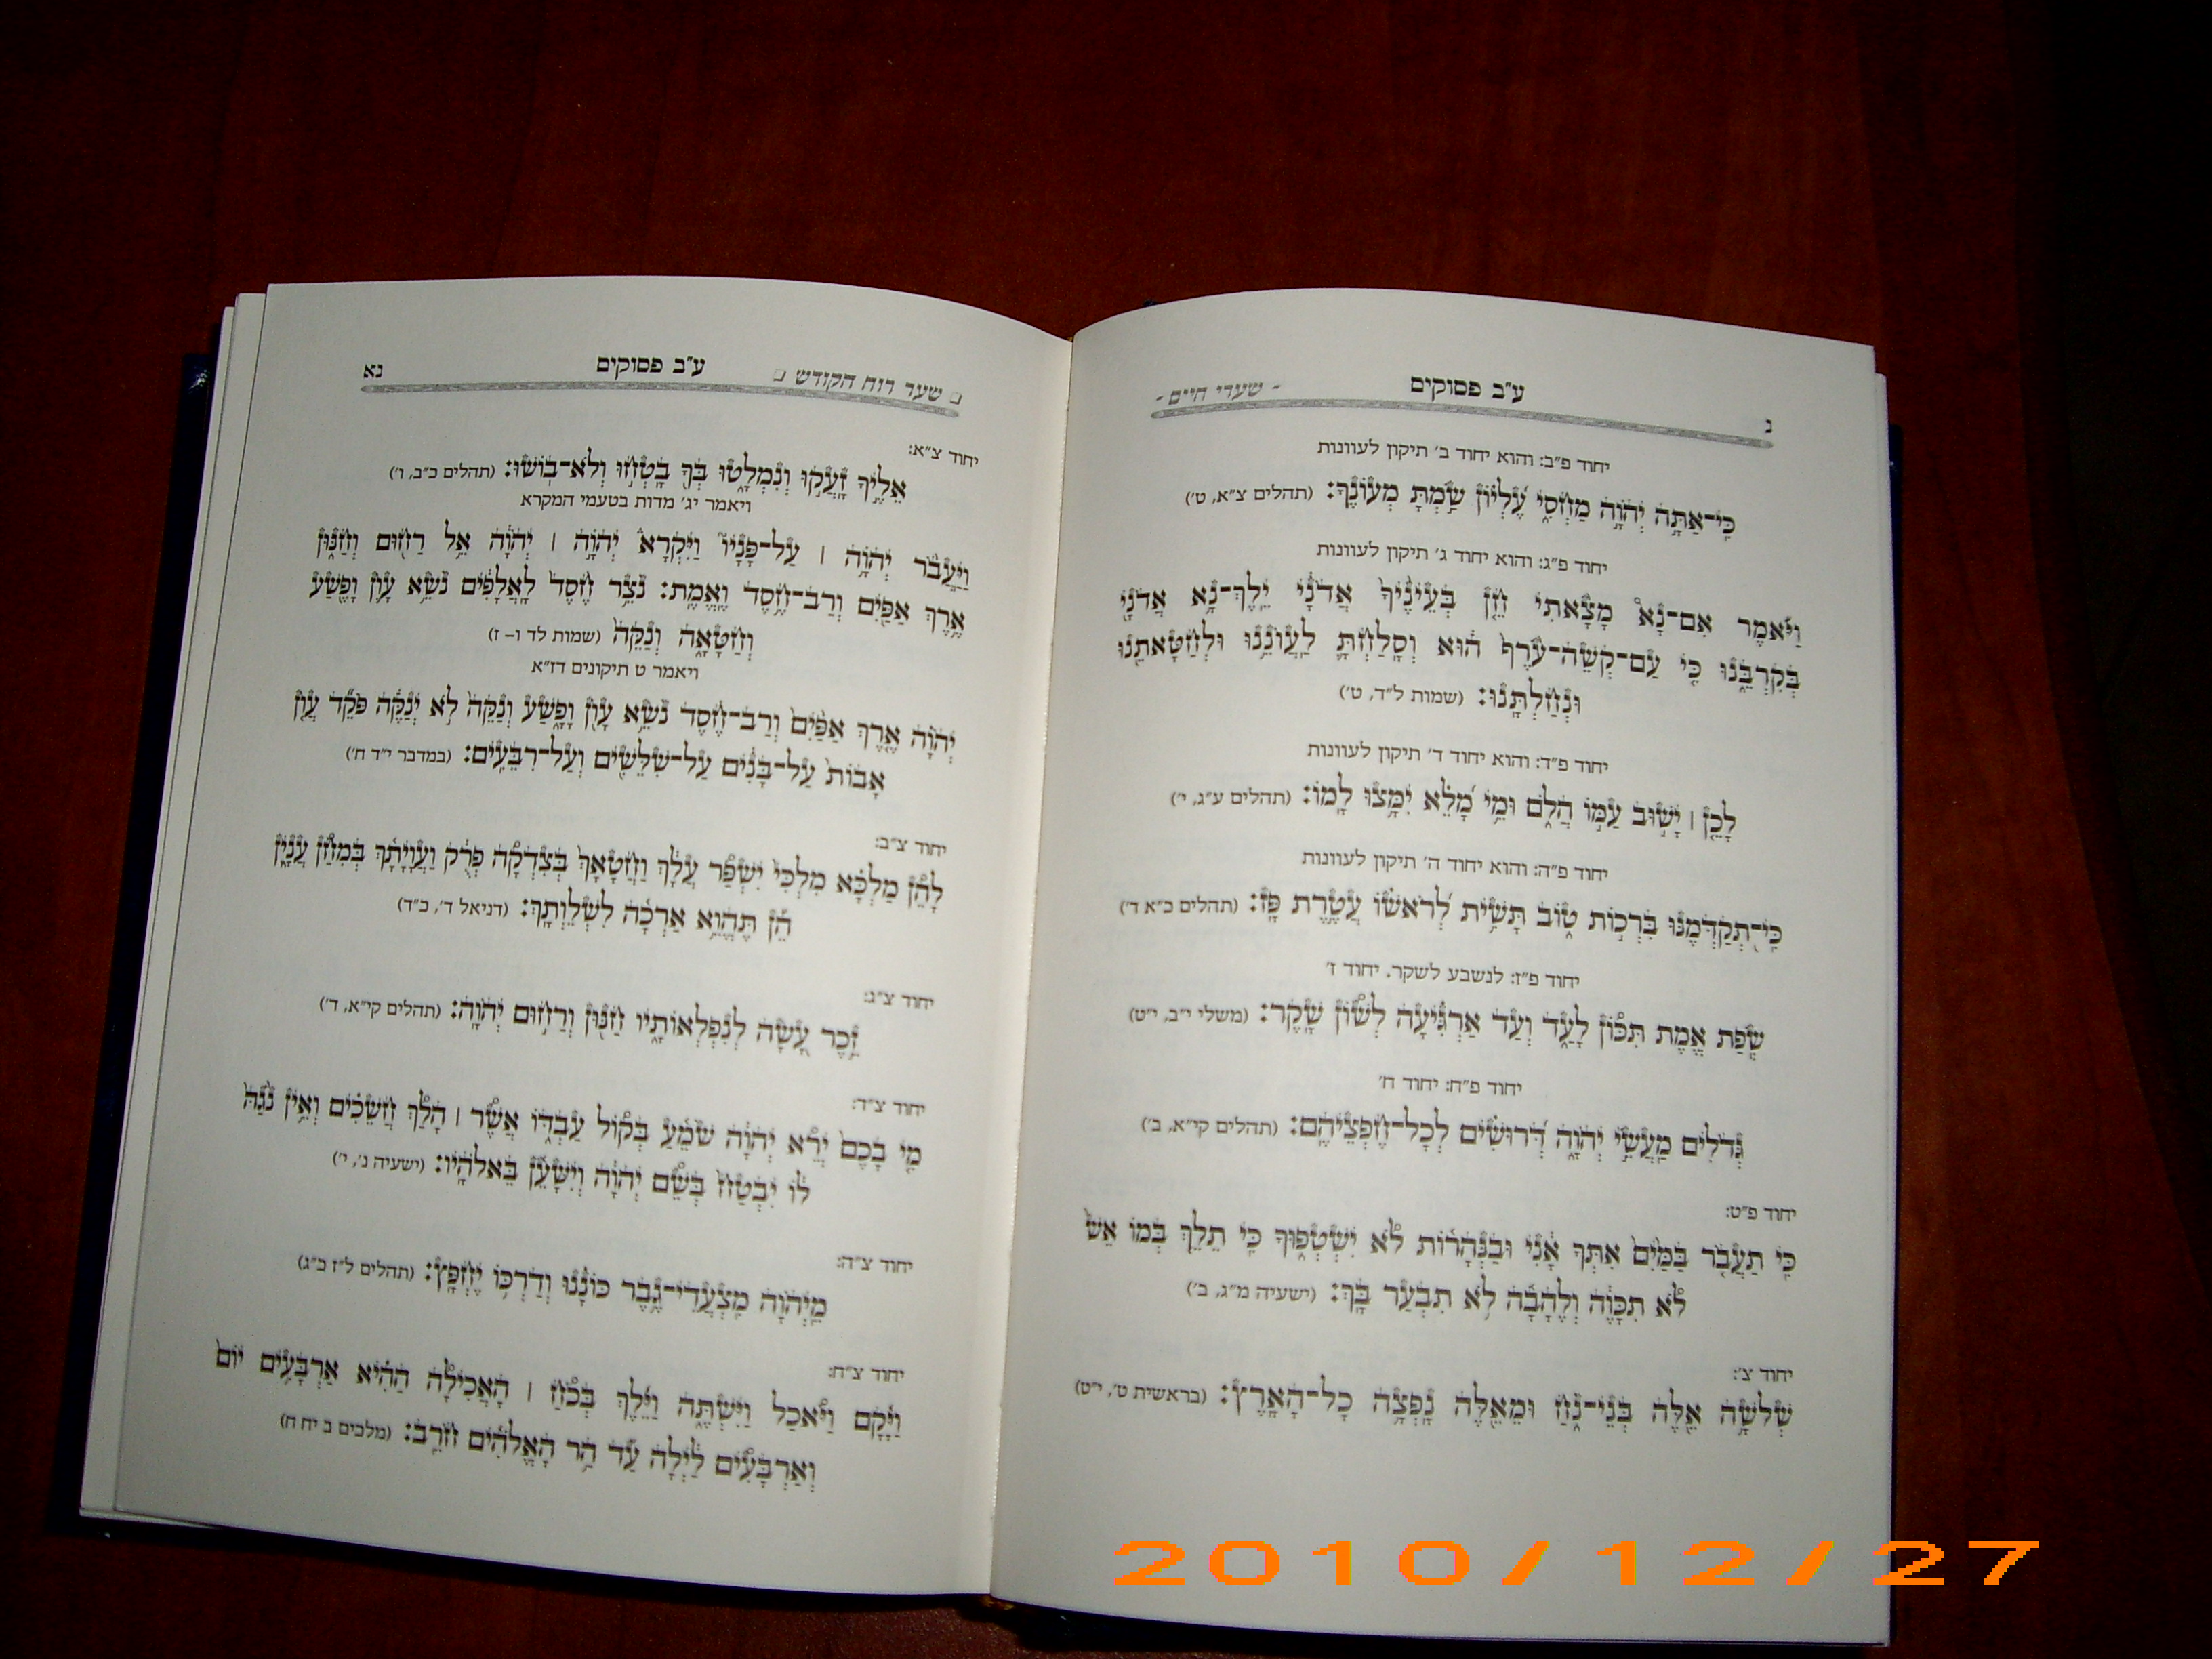 נ
ע״ב פסוקים
- שערי חיים -
יחוד פ״ב: והוא יחוד ב׳ תיקון לעוונות
כִּֽי־אַתָּ֣ה יְהֹוָ֣ה מַחְסִ֑י עֶ֝לְי֗וֹן שַׂ֣מְתָּ מְעוֹנֶֽךָ׃ (תהלים צ״א, ט׳)
יחוד פ״ג: והוא יחוד ג׳ תיקון לעוונות
וַיֹּ֡אמֶר אִם־נָא֩ מָצָ֨אתִי חֵ֤ן בְּעֵינֶ֙יךָ֙ אֲדֹנָ֔י יֵֽלֶךְ־נָ֥א אֲדֹנָ֖י
בְּקִרְבֵּ֑נוּ כִּ֤י עַם־קְשֵׁה־עֹ֙רֶף֙ ה֔וּא וְסָלַחְתָּ֛ לַעֲוֹנֵ֥נוּ וּלְחַטָּאתֵ֖נוּ
וּנְחַלְתָּֽנוּ׃ (שמות ל״ד, ט׳)
יחוד פ״ד: והוא יחוד ד׳ תיקון לעוונות
לָכֵ֤ן ׀ יָשׁ֣וּב עַמּ֣וֹ הֲלֹ֑ם וּמֵ֥י מָ֝לֵ֗א יִמָּ֥צוּ לָֽמוֹ׃ (תהלים ע״ג, י׳)
יחוד פ״ה: והוא יחוד ה׳ תיקון לעוונות
כִּֽי־תְ֭קַדְּמֶנּוּ בִּרְכ֣וֹת ט֑וֹב תָּשִׁ֥ית לְ֝רֹאשׁ֗וֹ עֲטֶ֣רֶת פָּֽז׃ (תהלים כ״א ד׳)
יחוד פ״ז: לנשבע לשקר. יחוד ז׳
שְֽׂפַת אֱ֭מֶת תִּכּ֣וֹן לָעַ֑ד וְעַד אַ֝רְגִּ֗יעָה לְשׁ֣וֹן שָֽׁקֶר׃ (משלי י״ב, י״ט)
יחוד פ״ח: יחוד ח׳
גְּ֭דֹלִים מַעֲשֵׂ֣י יְהֹוָ֑ה דְּ֝רוּשִׁ֗ים לְכָל־חֶפְצֵיהֶֽם׃ (תהלים קי״א, ב׳)
יחוד פ״ט:
כִּֽי תַעֲבֹ֤ר בַּמַּ֙יִם֙ אִתְּךָ אָ֔נִי וּבַנְּהָר֖וֹת לֹ֣א יִשְׁטְפ֑וּךָ כִּֽי תֵלֵ֤ךְ בְּמוֹ אֵשׁ֙
לֹ֣א תִכָּוֶ֔ה וְלֶהָבָ֖ה לֹ֥א תִבְעַר בָּֽךְ׃ (ישעיה מ״ג, ב׳)
יחוד צ׳:
שְׁלֹשָׁ֥ה אֵ֖לֶּה בְּנֵי־נֹ֑חַ וּמֵאֵ֖לֶּה נָֽפְצָ֥ה כָל־הָאָֽרֶץ׃ (בראשית ט׳, י״ט)
שער רוח הקודש
ע״ב פסוקים
נא
יחוד צ״א:
אֵלֶ֣יךָ זָעֲק֣וּ וְנִמְלָ֑טוּ בְּךָ֖ בָטְח֣וּ וְלֹא־בֽוֹשׁוּ׃ (תהלים כ״ב, ו׳)
ויאמר יג׳ מדות בטעמי המקרא
וַיַּעֲבֹ֨ר יְהֹוָ֥ה ׀ עַל־פָּנָיו֮ וַיִּקְרָא֒ יְהֹוָ֣ה ׀ יְהֹוָ֔ה אֵ֥ל רַח֖וּם וְחַנּ֑וּן
אֶ֥רֶךְ אַפַּ֖יִם וְרַב־חֶ֥סֶד וֶאֱמֶֽת׃ נֹצֵ֥ר חֶ֙סֶד֙ לָאֲלָפִ֔ים נֹשֵׂ֥א עָוֹ֛ן וָפֶ֖שַׁע
וְחַטָּאָ֑ה וְנַקֵּה֙ (שמות לד ו- ז)
ויאמר ט תיקונים דז״א
יְהֹוָ֗ה אֶ֤רֶךְ אַפַּ֙יִם֙ וְרַב־חֶ֔סֶד נֹשֵׂ֥א עָוֹ֖ן וָפָ֑שַׁע וְנַקֵּה֙ לֹ֣א יְנַקֶּ֔ה פֹּקֵ֞ד עֲוֹ֤ן
אָבוֹת֙ עַל־בָּנִ֔ים עַל־שִׁלֵּשִׁ֖ים וְעַל־רִבֵּעִֽים׃ (במדבר י״ד ח׳)
יחוד צ״ב:
לָהֵ֣ן מַלְכָּ֗א מִלְכִּי֙ יִשְׁפַּ֣ר עֲלָ֔ךְ וַחֲטָאָךְ֙ בְּצִדְקָ֣ה פְרֻ֔ק וַעֲוָיָתָ֖ךְ בְּמִחַ֣ן עֲנָ֑יִן
הֵ֛ן תֶּהֱוֵ֥א אַרְכָ֖ה לִשְׁלֵוְתָֽךְ׃ (דניאל ד׳, כ״ד)
יחוד צ״ג:
זֵ֣כֶר עָ֭שָׂה לְנִפְלְאוֹתָ֑יו חַנּ֖וּן וְרַח֣וּם יְהֹוָֽה׃ (תהלים קי״א, ד׳)
יחוד צ״ד:
מִ֤י בָכֶם֙ יְרֵ֣א יְהֹוָ֔ה שֹׁמֵ֖עַ בְּק֣וֹל עַבְדּ֑וֹ אֲשֶׁ֣ר ׀ הָלַ֣ךְ חֲשֵׁכִ֗ים וְאֵ֥ין נֹ֙גַהּ֙
ל֔וֹ יִבְטַח֙ בְּשֵׁ֣ם יְהֹוָ֔ה וְיִשָּׁעֵ֖ן בֵּאלֹהָֽיו׃ (ישעיה נ׳, י׳)
יחוד צ״ה:
מֵ֭יְהֹוָה מִֽצְעֲדֵי־גֶ֥בֶר כּוֹנָ֗נוּ וְדַרְכּ֥וֹ יֶחְפָּֽץ׃ (תהלים ל״ז כ״ג)
יחוד צ״ח:
וַיָּ֖קָם וַיֹּ֣אכַל וַיִּשְׁתֶּ֑ה וַיֵּ֜לֶךְ בְּכֹ֣חַ ׀ הָאֲכִילָ֣ה הַהִ֗יא אַרְבָּעִ֥ים יוֹם֙
וְאַרְבָּעִ֣ים לַ֔יְלָה עַ֛ד הַ֥ר הָאֱלֹהִ֖ים חֹרֵֽב׃ (מלכים ב יח ח)
2010/12/27